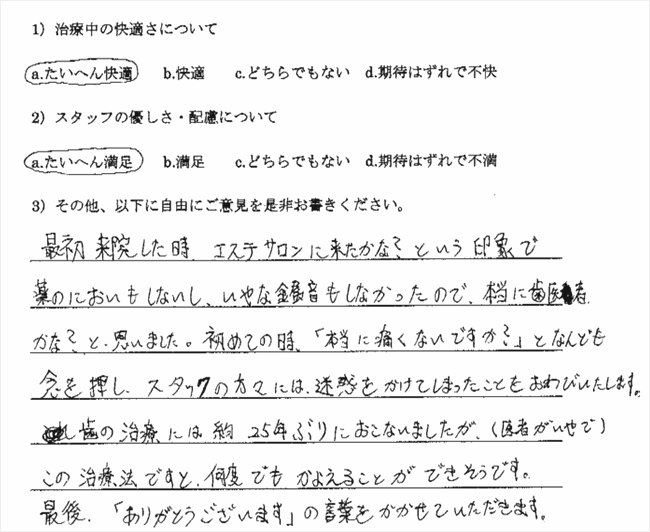 1）治療中の快適さについて
a.たいへん快適 b.快適 c.どちらでもない d.期待はずれで不快
2）スタッフの優しさ・配慮について
a.たいへん満足 b.満足 c.どちらでもない d.期待はずれで不満
3）その他、以下に自由にご意見を是非お書きください。
最初来院した時 エステサロンに来たかな？という印象で
薬のにおいもしないし、いやな音もしなかったので、本当に歯医者
かな？と思いました。初めての時、「本当に痛くないですか？」となんども
念を押し、スタッフの方々には、迷惑をかけてしまったことをおわびいたします。
歯の治療には約25年ぶりにおこないましたが、（医者がいやで）
この治療法ですと、何度でもかよえることができそうです。
最後、「ありがとうございます」の言葉をかかせていただきます。